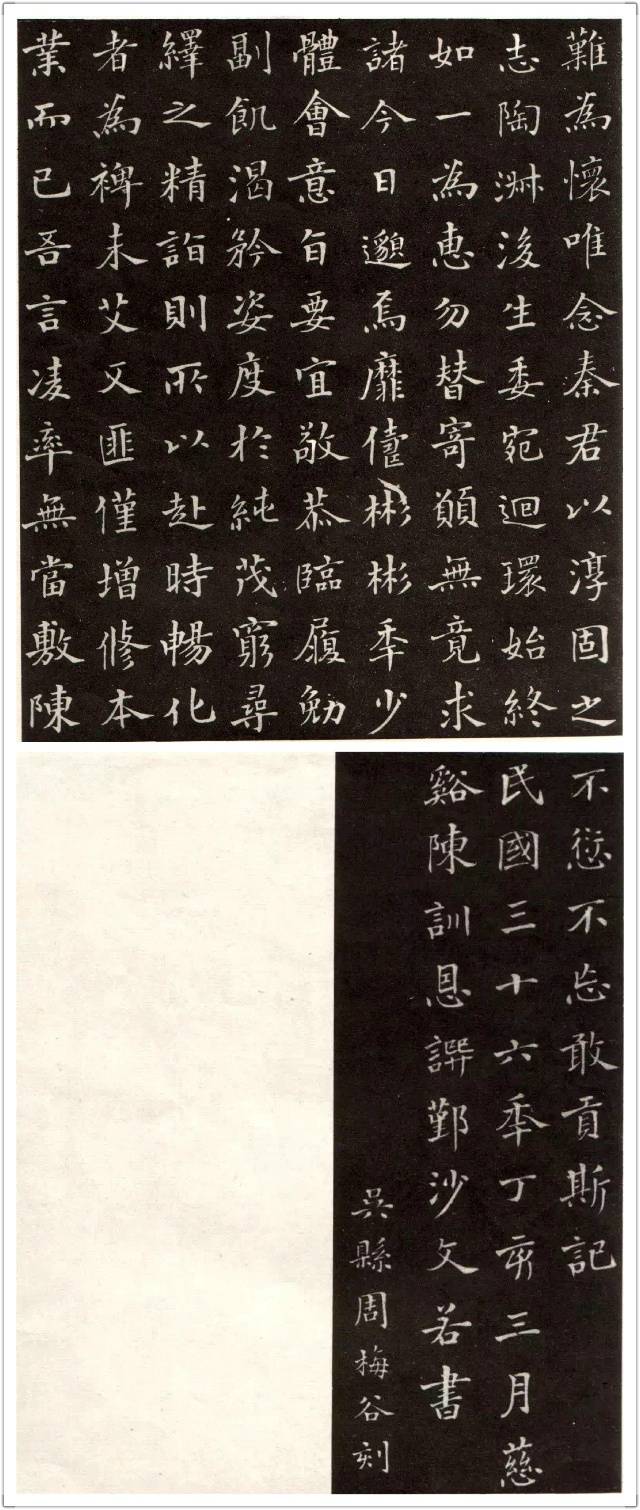 難為懷唯念秦君以淳固之
志陶淑後生委宛迴環始終
如一為惠勿替寄願無竟求
諸今日邈焉靡儔彬彬秊少
體會意旨要宜敬恭臨履勉
副飢渴矜姿度於純茂窮尋
繹之精詣則所以赴時暢化
者為裨未艾又匪僅增修本
業而已吾言凌率無當敷陳
不愆不忘敢貢斯記
民國三十六秊丁亥三月慈
谿陳訓恩譔鄞沙文若書
吳縣周梅谷刻